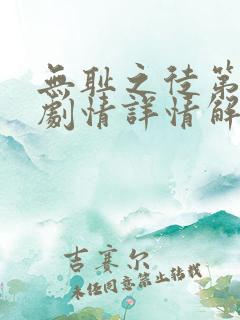 無耻之徒第
劇情詳情解
吉賽尔
未经同意禁止转载